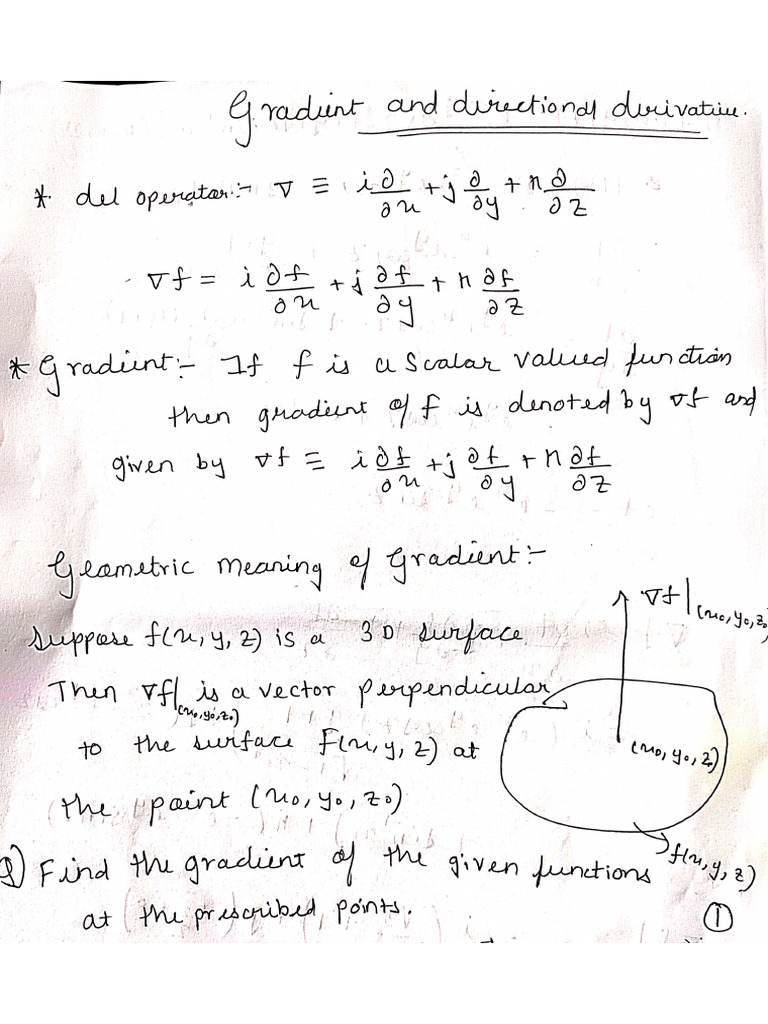 Gradient and directional derivative.
* del operator:- ∇ ≡ i ∂/∂x + j ∂/∂y + k ∂/∂z
∇f = i ∂f/∂x + j ∂f/∂y + k ∂f/∂z
* Gradient:- If f is a scalar valued function
then gradient of f is denoted by ∇f and
given by ∇f ≡ i ∂f/∂x + j ∂f/∂y + k ∂f/∂z
Geometric meaning of Gradient:-
∇f|(x₀, y₀, z₀)
Suppose f(x, y, z) is a 3D surface
Then ∇f|(x₀, y₀, z₀) is a vector perpendicular
to the surface f(x, y, z) at
(x₀, y₀, z₀)
the point (x₀, y₀, z₀)
f(x, y, z)
Q) Find the gradient of the given functions
at the prescribed points.
①